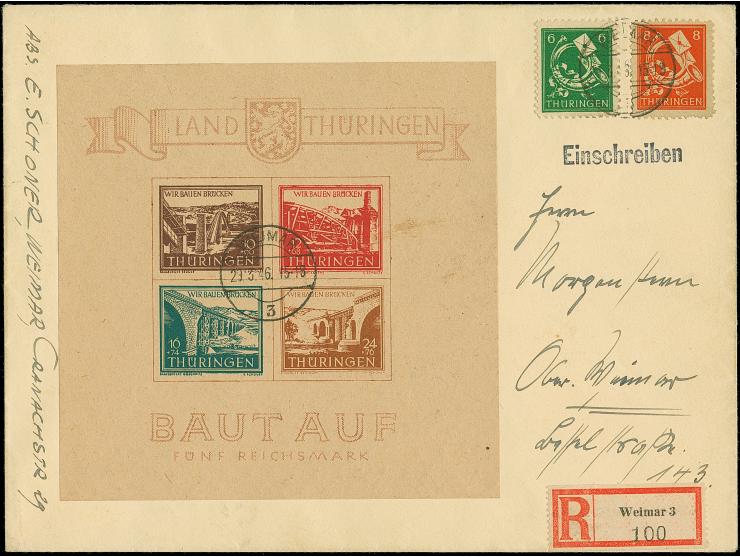 ABS. E. SCHONER, WEIMAR, CRANACHSTR 29
LAND THÜRINGEN
WIR BAUEN BRÜCKEN
THÜRINGEN
WIR BAUEN BRÜCKEN
THÜRINGEN
WEIMAR
29.3.46. 15-18
3
WIR BAUEN BRÜCKEN
16
+74
THÜRINGEN
WIR BAUEN BRÜCKEN
24
+76
THÜRINGEN
BAUT AUF
FÜNF REICHSMARK
6 6
THÜRINGEN
8 8
THÜRINGEN
Einschreiben
Herrn
Ober-Weimar
143.
R
Weimar 3
100